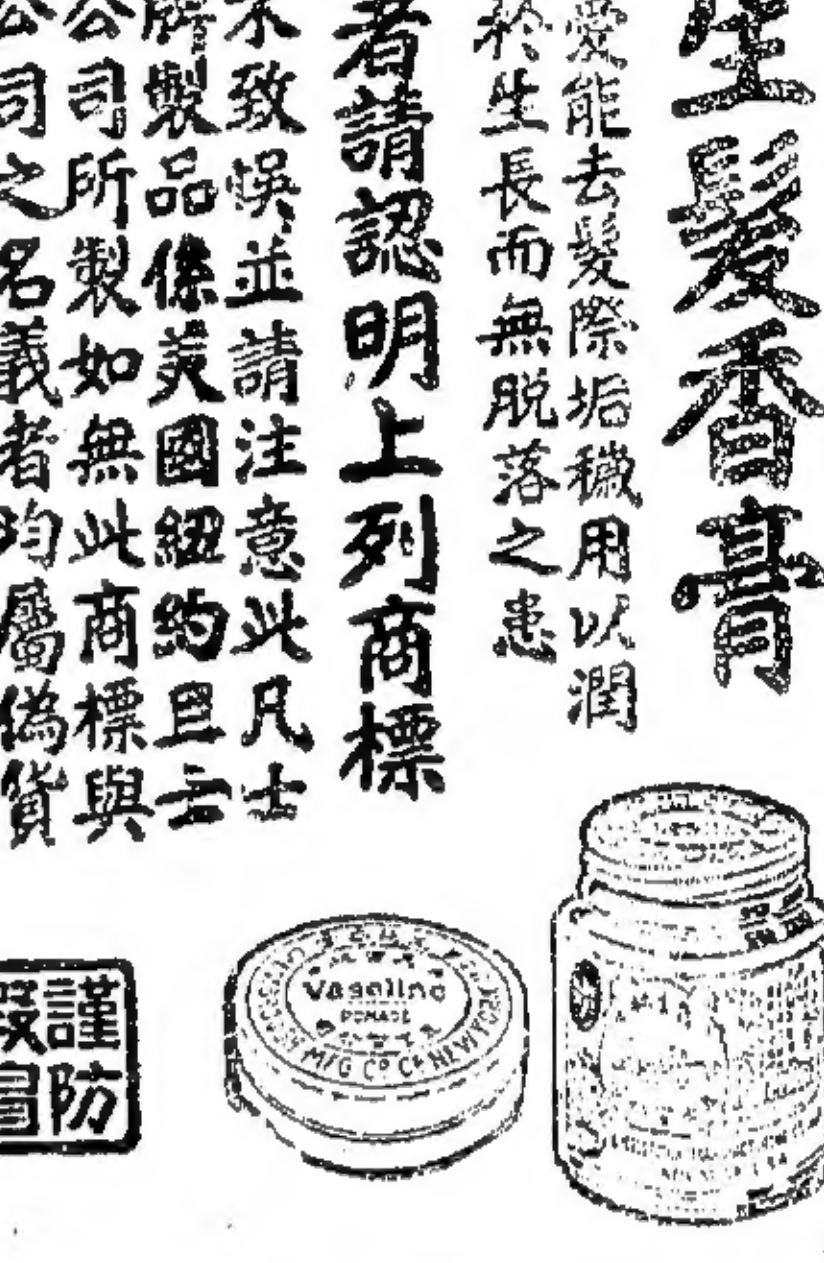 生髮香膏
愛能去髮際垢穢用以潤
於生長而無脱落之患
者請認明上列商標
不致悞並請注意此凡士
牌製品係美國紐約且士
公司所製如無此商標與
公司之名義者均屬偽貨
謹防
假冒
Vaseline
POMADE
MFG Co Cd NEW YORK